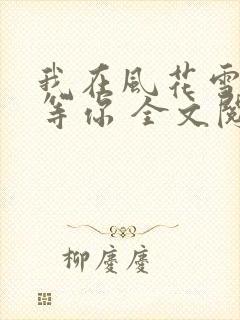 我在風花雪
等你 全文閱
柳慶慶